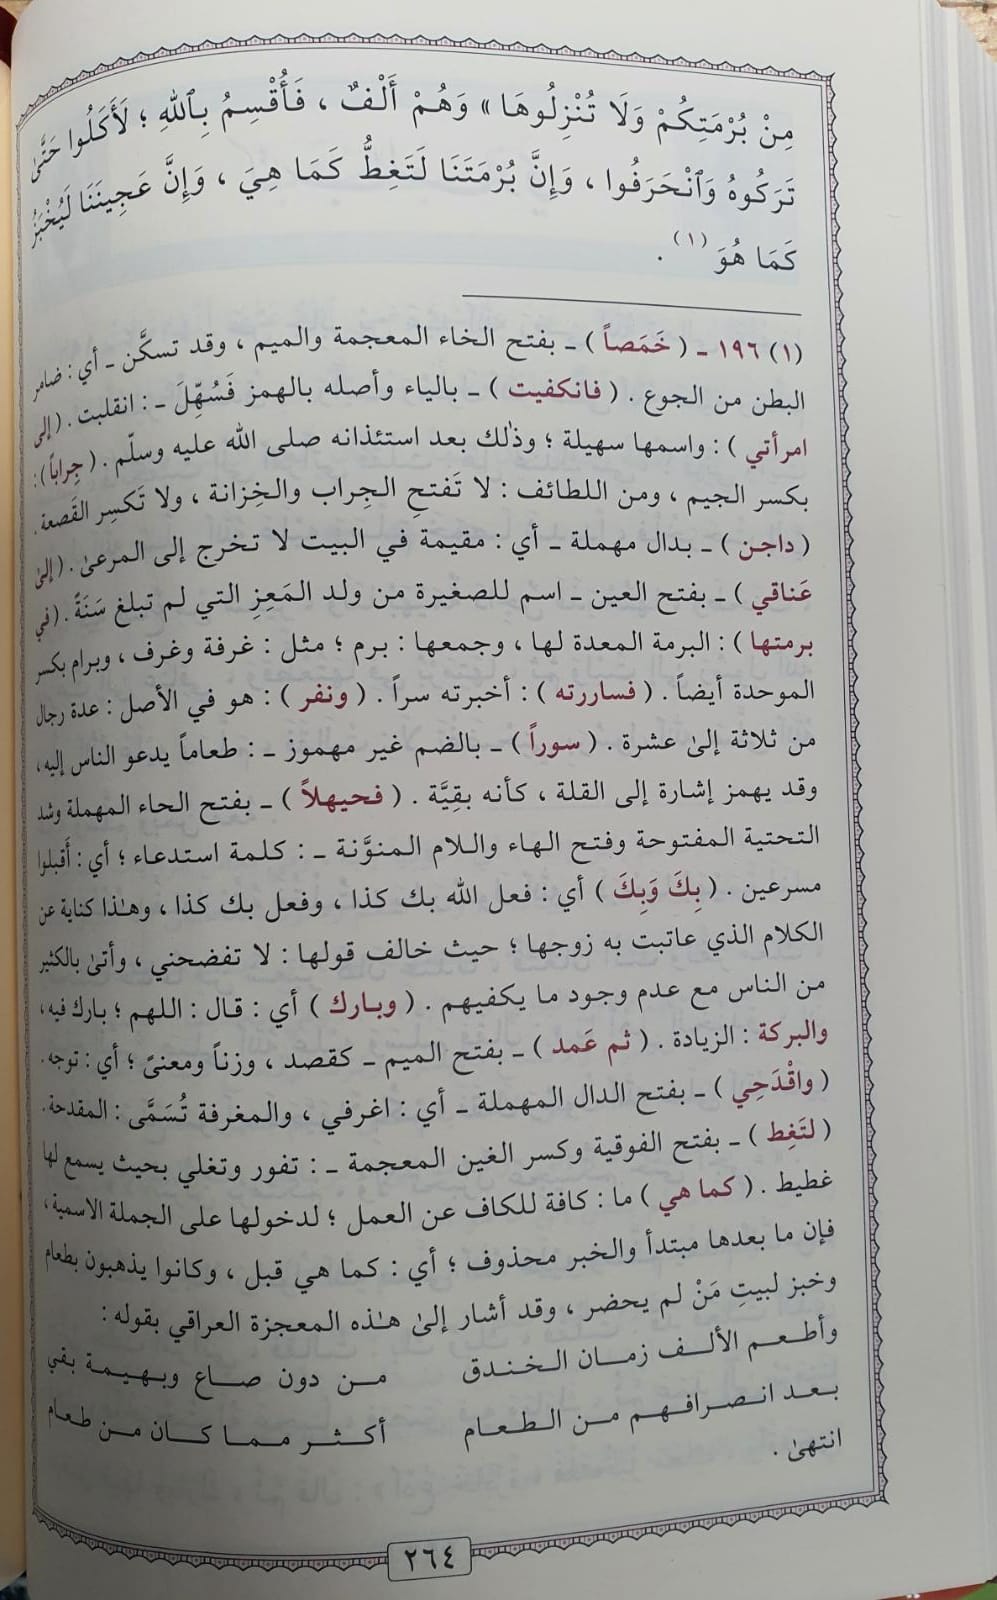 مِنْ بُرْمَتِكُمْ وَلَا تُنْزِلُوهَا» وَهُمْ أَلْفٌ ، فَأُقْسِمُ بِٱللهِ ؛ لَأَكَلُوا حَتَّىٰ
تَرَكُوهُ وَٱنْحَرَفُوا ، وَإِنَّ بُرْمَتَنَا لَتَغِطُّ كَمَا هِيَ ، وَإِنَّ عَجِينَنَا لَيُخْبَزُ
كَمَا هُوَ (١) .
(١) ١٩٦ ـ ( خَمَصاً ) ـ بفتح الخاء المعجمة والميم ، وقد تسكَّن ـ أي : ضامر
البطن من الجوع . ( فانكفيت ) ـ بالياء وأصله بالهمز فَسُهِّلَ ـ : انقلبت . ( إلى
امرأتي ) : واسمها سهيلة ؛ وذٰلك بعد استئذانه صلى الله عليه وسلّم . ( جِراباً ) :
بكسر الجيم ، ومن اللطائف : لا تَفتحِ الجِراب والخِزانة ، ولا تَكسِر القَصعة .
( داجن ) ـ بدال مهملة ـ أي : مقيمة في البيت لا تخرج إلى المرعىٰ . ( إلىٰ
عَناقي ) ـ بفتح العين ـ اسم للصغيرة من ولد المَعِزِ التي لم تبلغ سَنَةً . ( في
برمتها ) : البرمة المعدة لها ، وجمعها : برم ؛ مثل : غرفة وغرف ، وبرام بكسر
الموحدة أيضاً . ( فساررته ) : أخبرته سراً . ( ونفر ) : هو في الأصل : عدة رجال
من ثلاثة إلىٰ عشرة . ( سوراً ) ـ بالضم غير مهموز ـ : طعاماً يدعو الناس إليه ،
وقد يهمز إشارة إلى القلة ، كأنه بقِيَّة . ( فحيهلاً ) ـ بفتح الحاء المهملة وشد
التحتية المفتوحة وفتح الهاء واللام المنوَّنة ـ : كلمة استدعاء ؛ أي : أَقبلوا
مسرعين . ( بِكَ وَبِكَ ) أي : فعل الله بك كذا ، وفعل بك كذا ، وهٰذا كناية عن
الكلام الذي عاتبت به زوجها ؛ حيث خالف قولها : لا تفضحني ، وأتىٰ بالكثير
من الناس مع عدم وجود ما يكفيهم . ( وبارك ) أي : قال : اللهم ؛ بارك فيه ،
والبركة : الزيادة . ( ثم عَمد ) ـ بفتح الميم ـ كقصد ، وزناً ومعنىً ؛ أي : توجه .
( واقْدَحِي ) ـ بفتح الدال المهملة ـ أي : اغرفي ، والمغرفة تُسَمَّى : المقدحة .
( لتَغِط ) ـ بفتح الفوقية وكسر الغين المعجمة ـ : تفور وتغلي بحيث يسمع لها
غطيط . ( كما هي ) ما : كافة للكاف عن العمل ؛ لدخولها على الجملة الاسمية ،
فإن ما بعدها مبتدأ والخبر محذوف ؛ أي : كما هي قبل ، وكانوا يذهبون بطعام
وخبز لبيتِ مَنْ لم يحضر ، وقد أشار إلىٰ هٰذه المعجزة العراقي بقوله :
وأطعم الألف زمان الخندق من دون صاع وبهيمة بقي
بعد انصرافهم من الطعام أكثر مما كان من طعام
انتهىٰ .
٢٦٤